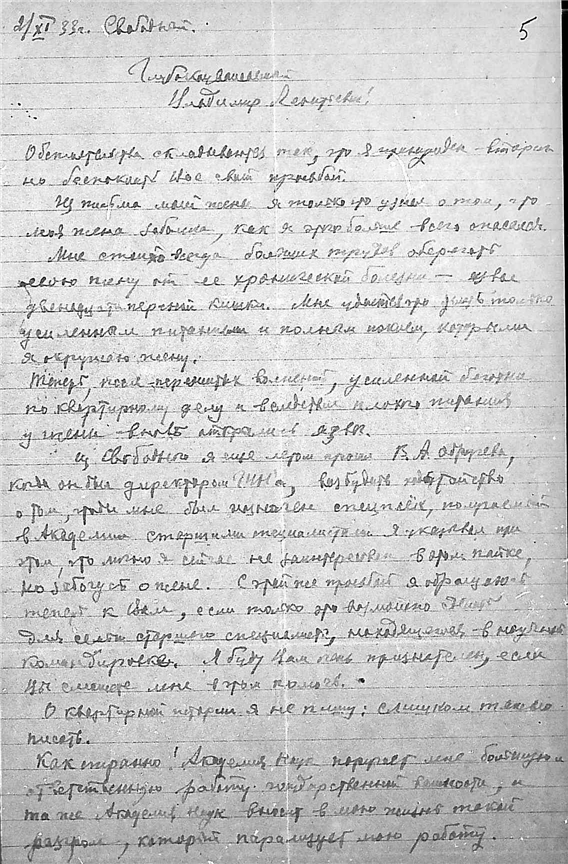 2/XI 33г. Свободный.
5
Глубокоуважаемый
Владимир Леонтьевич!
Обстоятельства складываются так, что я принужден вторич
но беспокоить Вас своей просьбой.
Из письма моей жены я только что узнал о том, что
моя жена заболела, как я этого больше всего опасался.
Мне стоило всегда больших трудов оберегать
свою жену от ее хронической болезни — язвы
двенадцатиперстной кишки. Мне удавалось это только
усиленным питанием и полным покоем, которыми
я окружаю жену.
Теперь, после перенесенных волнений, усиленной беготни
по квартирному делу и вследствие плохого питания
у жены вновь открылись язвы.
Из Свободного я еще летом просил В. А. Обручева,
когда он был директором ГИНа, возбудить ходатайство
о том, чтобы мне был назначен спецпаек, получаемый
в Академии старшими специалистами. Я указывал при
этом, что лично я сейчас не заинтересован в этом пайке,
но забочусь о жене. С этой же просьбой я обращаюсь
теперь к Вам, если только это возможно
для семьи старшего специалиста, находящегося в научной
командировке. Я буду Вам очень признателен, если
Вы сможете мне в этом помочь.
О квартирной истории я не пишу: слишком тяжело
писать.
Как странно! Академия Наук поручает мне большую и
ответственную работу государственной важности, и
та же Академия Наук вносит в мою жизнь такой
разгром, который парализует мою работу.